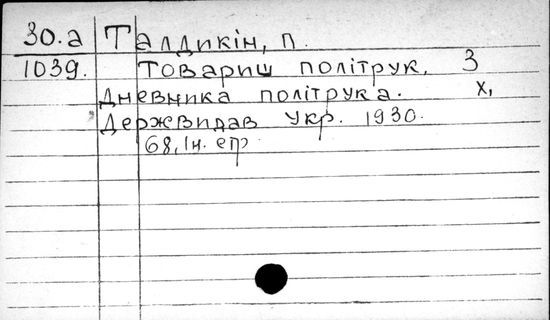 30.а Талдикін, П.
1039. Товариш політрук. З
Дневника політрука. Х,
Держвидав Укр. 1930.
68, Ін. стр.